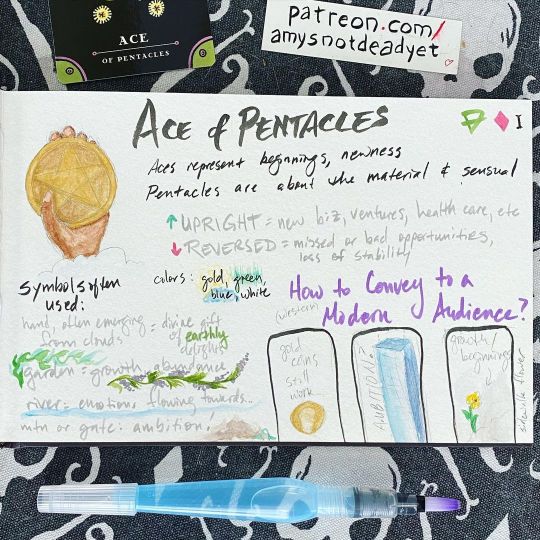 ACE
OF PENTACLES
patreon.com/
amysnotdeadyet
ACE of PENTACLES
I
Aces represent beginnings, newness
Pentacles are about the material & sensual
↑ UPRIGHT = new biz, ventures, health care, etc
↓ REVERSED = missed or bad opportunities,
loss of stability
Symbols often
used:
colors: gold, green,
blue, white
hand, often emerging = divine gift
from clouds of earthly
delights
garden = growth, abundance
river = emotions flowing towards...
mtn or gate: ambition!
How to Convey to a
(western) Modern Audience?
gold
coins
still
work
AMBITION?
growth/
beginnings
sidewalk flower